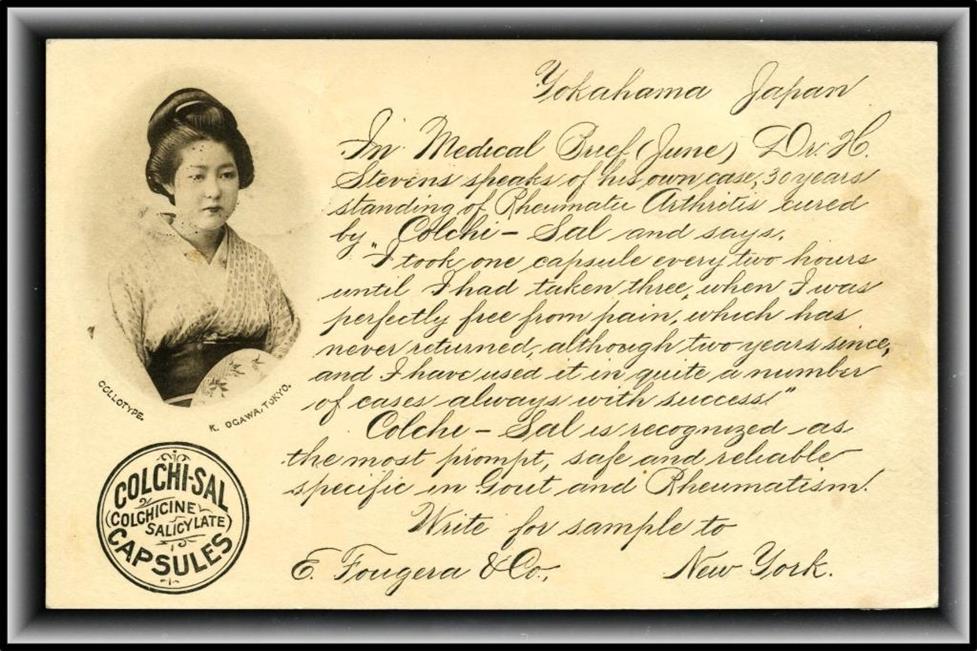 Yokahama Japan
In Medical Brief (June) Dr. H.
Stevens speaks of his own case, 30 years
standing of Rheumatic Arthritis cured
by "Colchi-Sal and says,
"I took one capsule every two hours
until I had taken three, when I was
perfectly free from pain, which has
never returned, although two years since,
and I have used it in quite a number
of cases always with success!"
Colchi-Sal is recognized as
the most prompt, safe and reliable
specific in Gout and Rheumatism!
Write for sample to
E. Fougera & Co., New York.
COLLOTYPE.
K. OGAWA, TOKYO.
COLCHI-SAL
(COLCHICINE
SALICYLATE)
CAPSULES